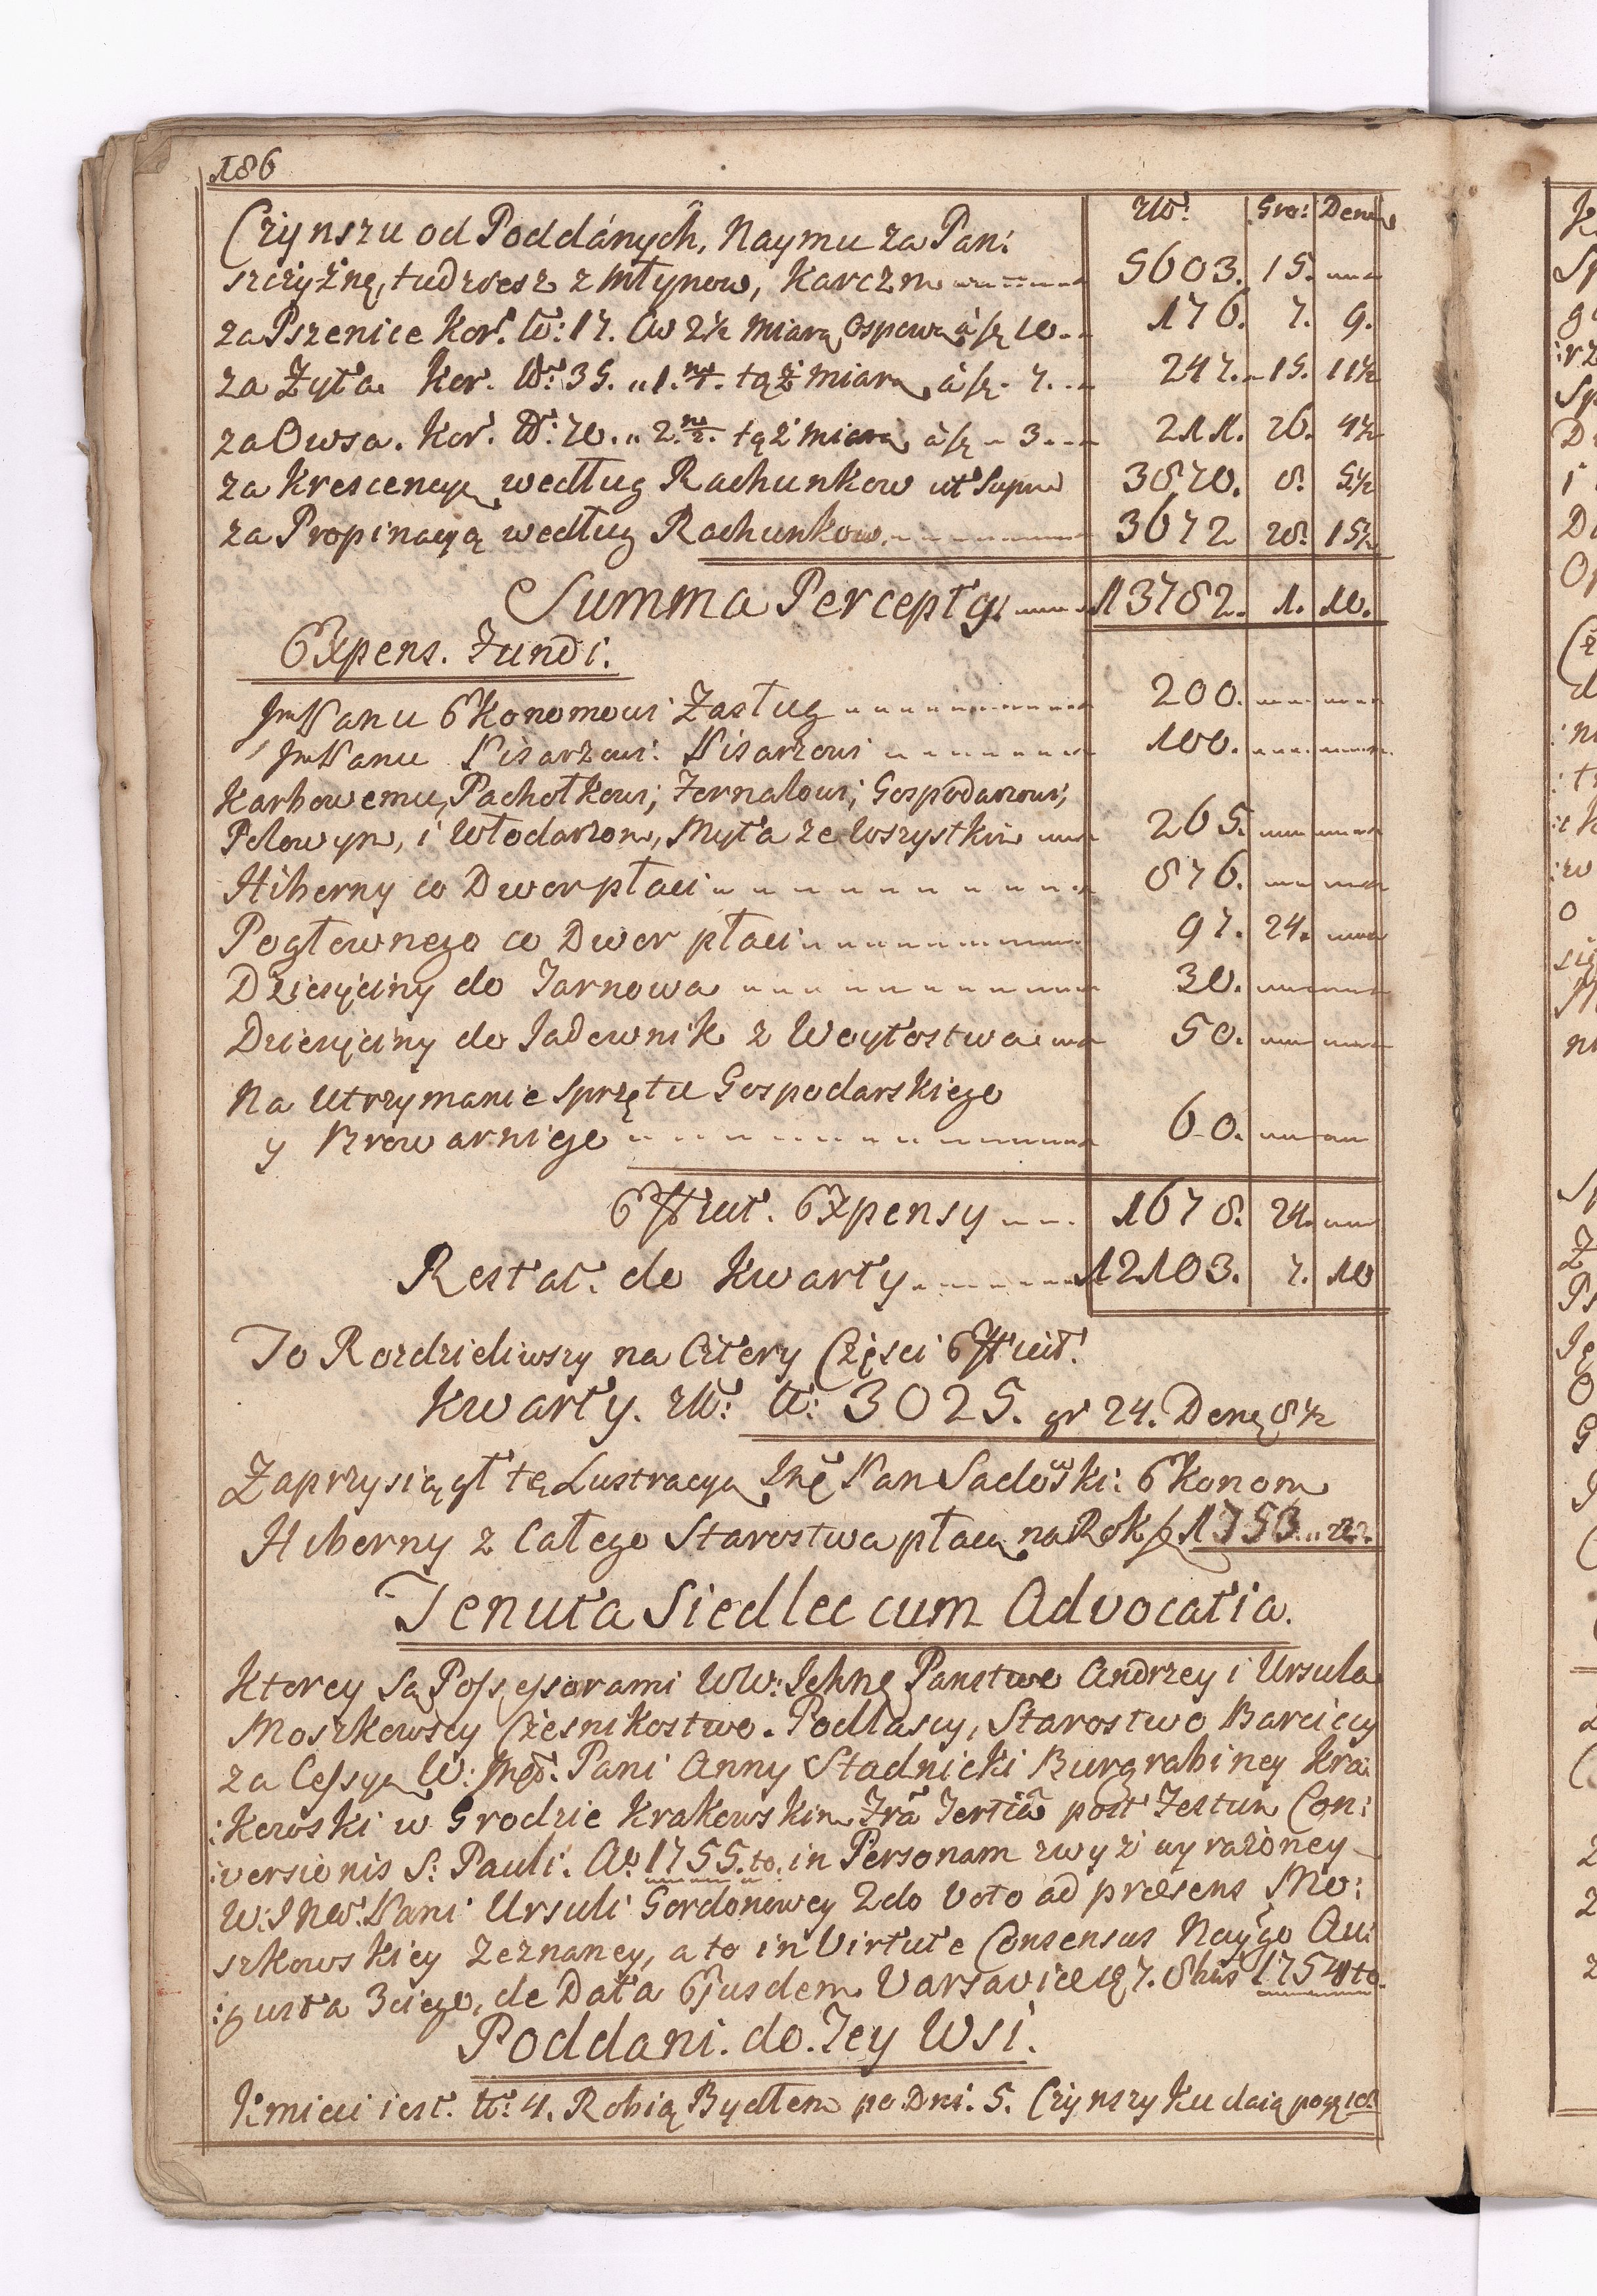 186
Złł: Gro: Den:
Czynszu od Poddánych, Naymu za Pań:
szczyżnę, tudziesz z Młynow, Karczm 5603. 15.
za Pszenice Kor. Nro: 17. Cw 2½ miarą Ospową à fl 10. 176. 7. 9.
za Zyta Kor. Nro: 35. 1. tąż miarą à fl. 7. 247. 15. 11½
za Owsa. Kor. Nro: 70. 2. tąż miarą à fl 3. 211. 26. 4½
za Krescencyą według Rachunkow ut Supra 3870. 8. 5½
za Propinacyą według Rachunkow 3672 28. 15½
Summa Percepty. 13782. 1. 10.
Expens. Fundi.
JmPanu Ekonomowi Zasług 200.
JmPanu Pisarzowi: Pisarzowi 100.
Karbowemu, Pachołkowi, Fornalowi, Gospodarzowi,
Polowym, i Włodarzom, Myta ze Wszystkim 265.
Hiberny co Dwor płaci 876.
Pogłownego co Dwor płaci 97. 24.
Dziesięciny do Tarnowa 30.
Dziesięciny do Jadownik z Woytostwa 50.
Na Utrzymanie Sprzętu Gospodarskiego
y Browarniego 60.
Efficit. Expensy 1678. 24.
Restat. do Kwarty 12103. 7. 10
To Rozdzieliwszy na Cztery Części Efficit.
Kwarty. Złł: Nro: 3025. gr 24. Den: 8½
Zaprzysiągł tę Lustracyą Jmć Pan Sadowski: Ekonom
Hiberny z Całego Starostwa płacą na Rok fl 1753. 22.
Tenuta Siedlec cum Advocatia.
Ktorey Są Possessorami WW: Ichmć Panstwo Andrzey i Ursula
Moszkowscy Cześnikostwo. Podlascy, Starostwo Barciccy
za Cessyą W: Jmć. Pani Anny Stadnicki Burgrabiney Kra:
:kowski w Grodzie Krakowskim Fra Tertiâ post Festum Con:
:versionis S: Pauli. Ao 1755.to. in Personam zwyż wyrażoney
W: Jmć. Pani Ursuli Gordonowey 2do Voto ad præsens Mo:
szkowskiey zeznaney, a to in Virtute Consensus Nayżgo Au:
:gusta 3ciego, de Data Ejusdem Varsaviæ 7. 8bris 1754to.
Poddani. do. Tey Wsi.
Kmieci iest. Nro: 4. Robią Bydłem po Dni. 5. Czynszyku daią po gr 18.